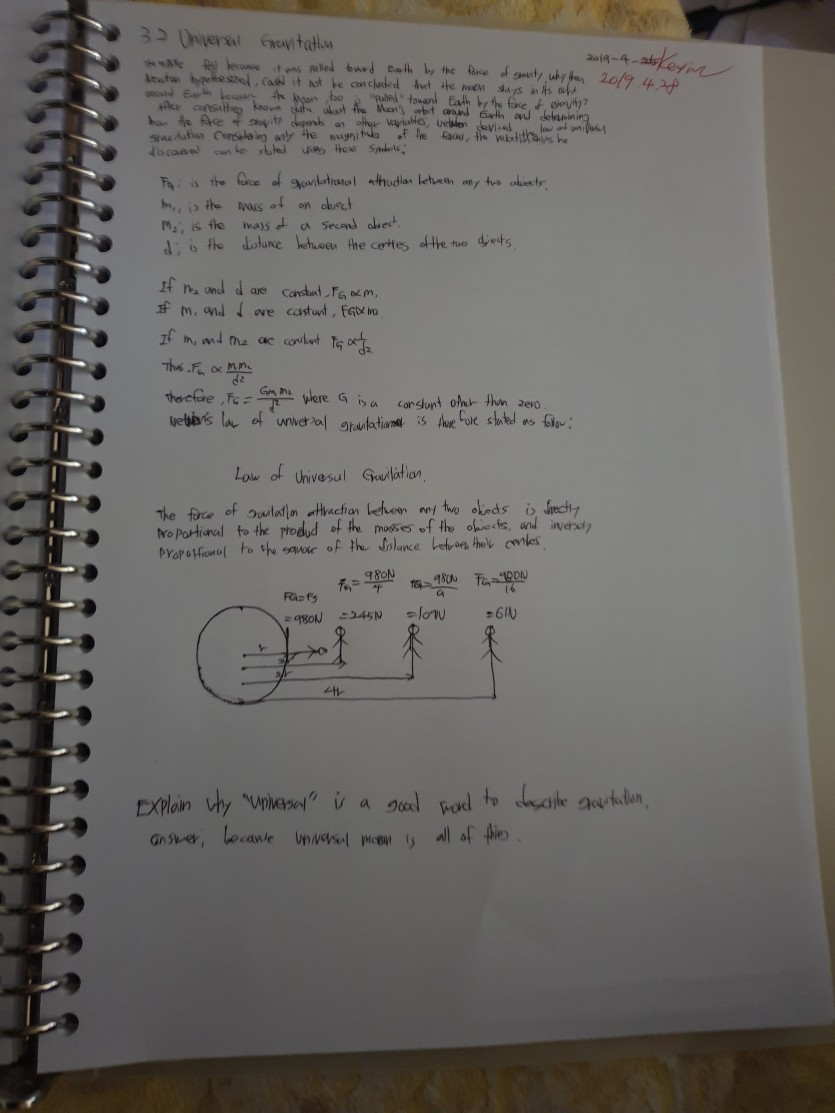 3.2 Universal Gravitation
2019-4- Kevin
2019.4.28
fell because it was pulled toward Earth by the force of gravity, why then
Newton hypothesized. Could it not be concluded that the moon stays in its orbit
around Earth because the Moon, too is "pulled" toward Earth by the force of gravity?
After consulting known data about the Moon's orbit around Earth and determining
how the force of gravity depends on other variables, derived law of universal
gravitation Considering only the magnitude of the force, the relationships he
discovered can be stated using these symbols:
FG: is the force of gravitational attraction between any two objects.
m1, is the mass of an object
m2; is the mass of a second object.
d; is the distance between the centres of the two objects.
If m2 and d are constant, FG ∝ m1
If m1 and d are constant, FG ∝ m2
If m1 and m2 are constant FG ∝ 1/d2
Thus, FG ∝ m1m2/d2
Therefore, FG = Gm1m2/d2 where G is a constant other than zero
law of universal gravitation is therefore stated as follow;
Law of Universal Gravitation.
The force of gravitation attraction between any two objects is directly
proportional to the product of the masses of the objects, and inversely
proportional to the square of the distance between their centres.
FG=Fg
=980N
FG = 980N/4
=245N
FG = 980N/9
=109N
FG = 980N/16
=61N
r
4r
Explain why "universal" is a good word to describe gravitation.
answer; because universal mean is all of